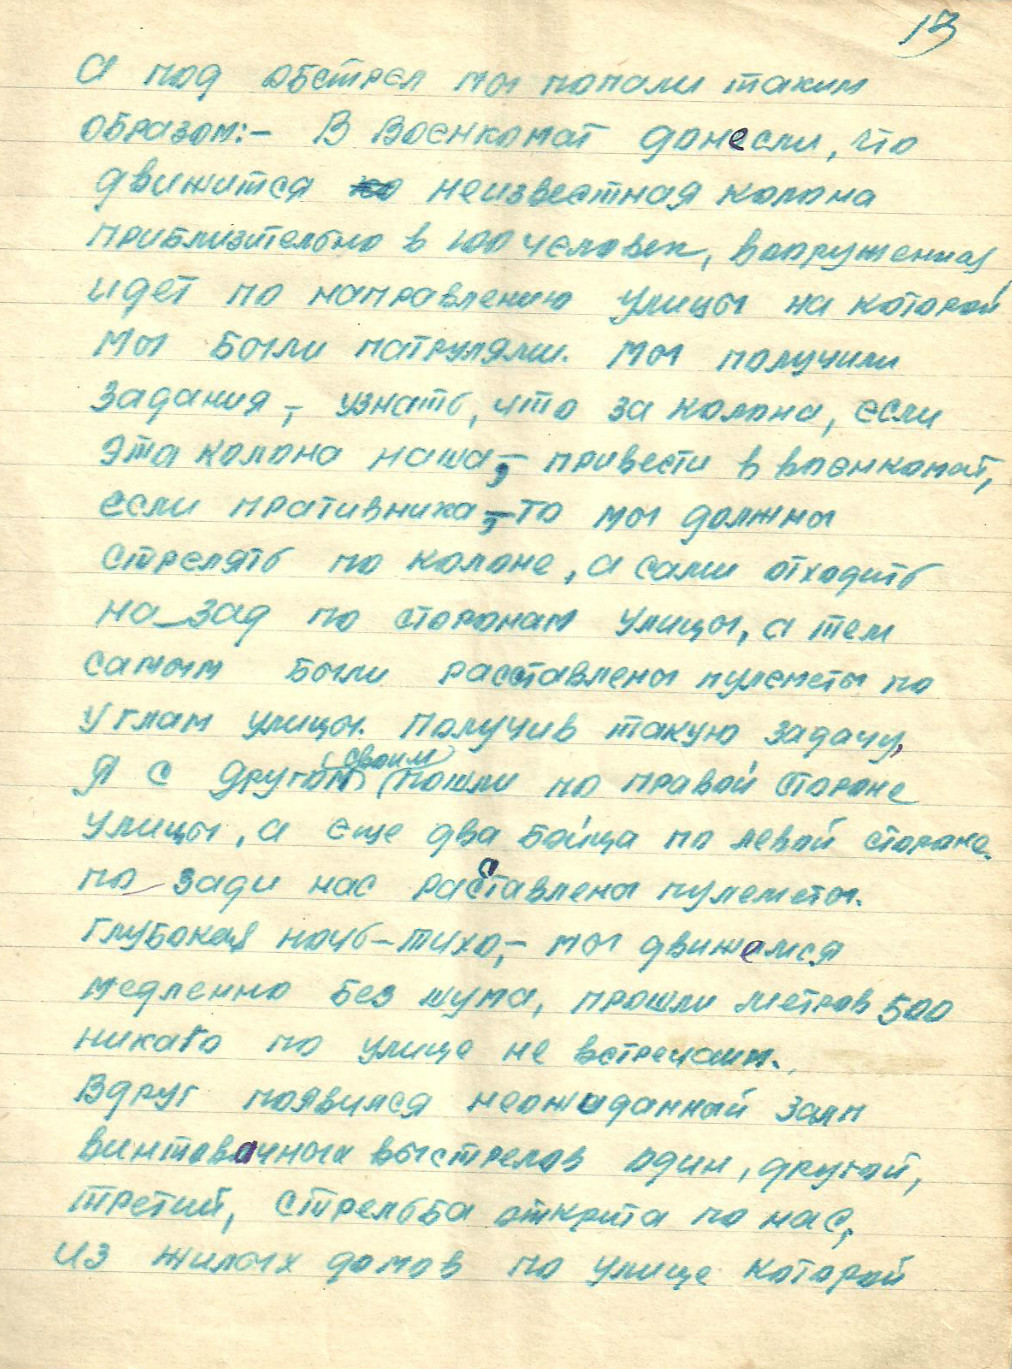 13
А под обстрел мы попали таким
образом:- В Военкомат донесли, что
движится неизвестная колона
приблизительно в 100 человек, вооруженная
идет по направлению улицы на которой
мы были патрулями. Мы получили
задания, - узнать, что за колона, если
эта колона наша, - привести в военкомат,
если пративника, - то мы должны
стрелять по колоне, а сами отходить
на-зад по сторонам улицы, а тем
самым были расставлены пулеметы по
углам улицы. Получив такую задачу,
Я с другом (своим) пошли по правой стороне
улицы, а еще два бойца по левой стороне.
по-зади нас раставлены пулеметы.
Глубокая ночь-тихо,- мы движемся
медленно без шума, прошли метров 500
никаго по улице не встречаем.
Вдруг появился неожиданный залп
винтовачных выстрелов один, другой,
третий, стрельба открита по нас,
из жилых домов по улице которой